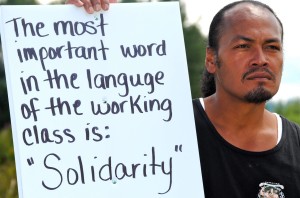 The most
important word
in the languge
of the working
class is:
"Solidarity"